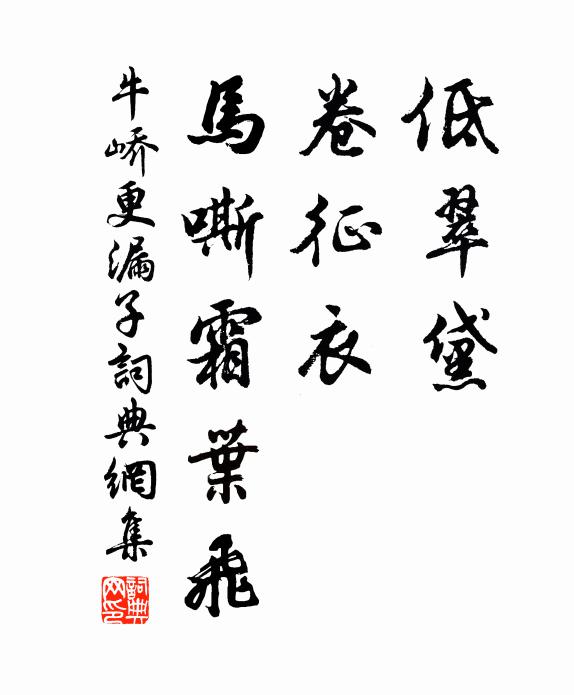 低翠黛
卷征衣
馬嘶霜葉飛
牛嶠更漏子詞典網集
詞典